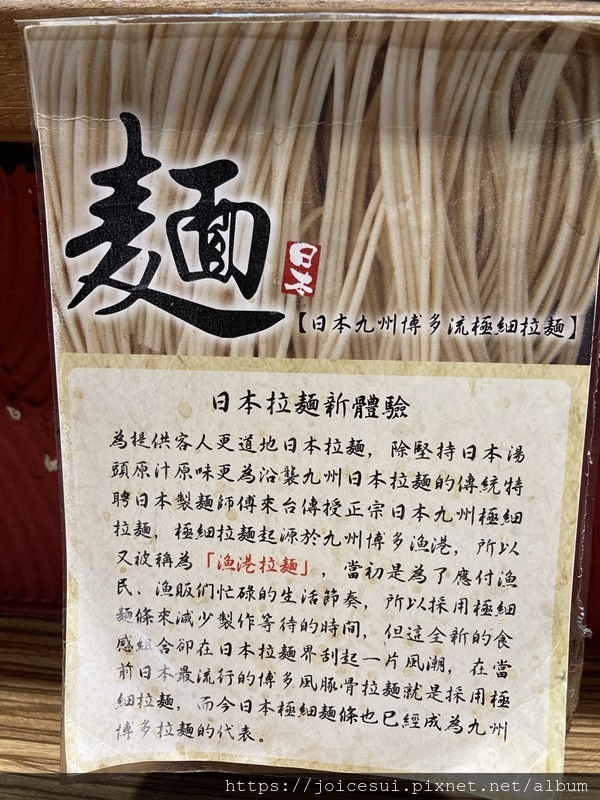 麵
日本
【日本九州博多流極細拉麵】
日本拉麵新體驗
為提供客人更道地日本拉麵，除堅持日本湯
頭原汁原味更為沿襲九州日本拉麵的傳統特
聘日本製麵師傅來台傳授正宗日本九州極細
拉麵，極細拉麵起源於九州博多漁港，所以
又被稱為「漁港拉麵」，當初是為了應付漁
民、漁販們忙碌的生活節奏，所以採用極細
麵條來減少製作等待的時間，但這全新的食
感組合卻在日本拉麵界刮起一片風潮，在當
前日本最流行的博多風豚骨拉麵就是採用極
細拉麵，而今日本極細麵條也已經成為九州
博多拉麵的代表。
https://joicesui.pixnet.net/album